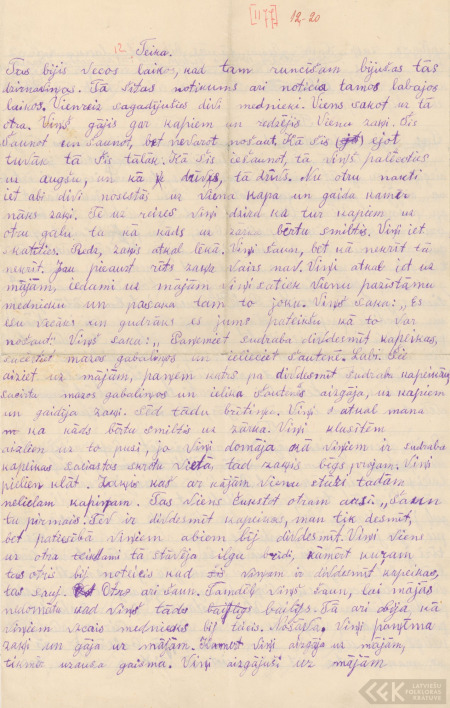 [1177] 12-20
12. Teika.
Tas bijis vecos laikos, kad tam runcīšam bijušas tās
dirnaviņas. Tā šitas notikums arī noticis tamos labajos
laikos. Vienreiz sagadījušies divi mednieki. Viens sakot uz tā
otra. Viņš gājis gar kapiem un redzējis Vienu zaķi. Šis
šaunot un šaunot, bet nevarot nošaut. Kā šis ejot
tuvāk tā šis tālāk. Kā šis iešaunot, tā viņš palēcoties
uz augšu, un kā drūvis, tā drūvs. Nu otru nakti
iet abi divi nosēstās uz Viena kapa un gaida kamēr
nāks zaķis. Te uz reizes viņi dzird ka tur kapiem uz
otru galu tā kā kāds uz zaru bērtu smiltis. Viņi iet
skatīties. Redz, zaķis atkal lēkā. Viņi šaun, bet kā nekrīt tā
nekrīt. Jau pieaust rīts zaķa vairs nav. Viņi atkal iet uz
mājām, iedami uz mājām viņi satiek vienu pazīstamu
mednieku un pasaka tam to joku. Viņš saka: „Es
esu vecāks un gudrāks es jums pateikšu kā to var
nošaut. Viņš saka: „Paņemiet sudraba divdesmit kapeikas,
sacērtiet mazos gabaliņos un ielieciet šautenē. Labi šie
aiziet uz mājām, paņem katrs pa divdesmit sudraba kapeikām,
sacirtu mazos gabaliņos un ielika šautenēs aizgāja, uz kapiem
un gaidīja zaķi. Sēd tādu brītiņu. Viņi atkal mana
ka kāds bērtu smiltis uz zārka. Viņi klusītēm
aizlien uz to pusi, jo Viņi domāja kā viņiem ir sudraba
kapeikas sacirstas skrošu vietā, tad zaķis bēgs projām. Viņi
pielien klāt. Zaķis kas ar kājām Vienu stūri tādam
nelielam kapiņam. Tas Viens čukst otram ausī: „Šaun
tu pirmais. Tev ir divdesmit kapeikas, man tik desmit,
bet patiesībā viņiem abiem bij divdesmit. Viņi Viens
uz otra teikdami tā stāvēja ilgu brīdi, kāmēr kuram
tas otris bij noteicis kad viņam ir divdesmit kapeikas,
tas šauj. Otrs arī šaun. Tamdēļ viņš šaun, lai mājās
nedomātu kad viņš tāds bailīgs. Tā arī bija, kā
viņiem vecais mednieks bij teicis. Nošāva. Viņi paņēma
zaķi un gāja uz mājām. Kamēr Viņi aizgāja uz mājām,
tikmēr uzausa gaisma. Viņi aizgājuši uz mājām
LATVIEŠU
FOLKLORAS
KRĀTUVE